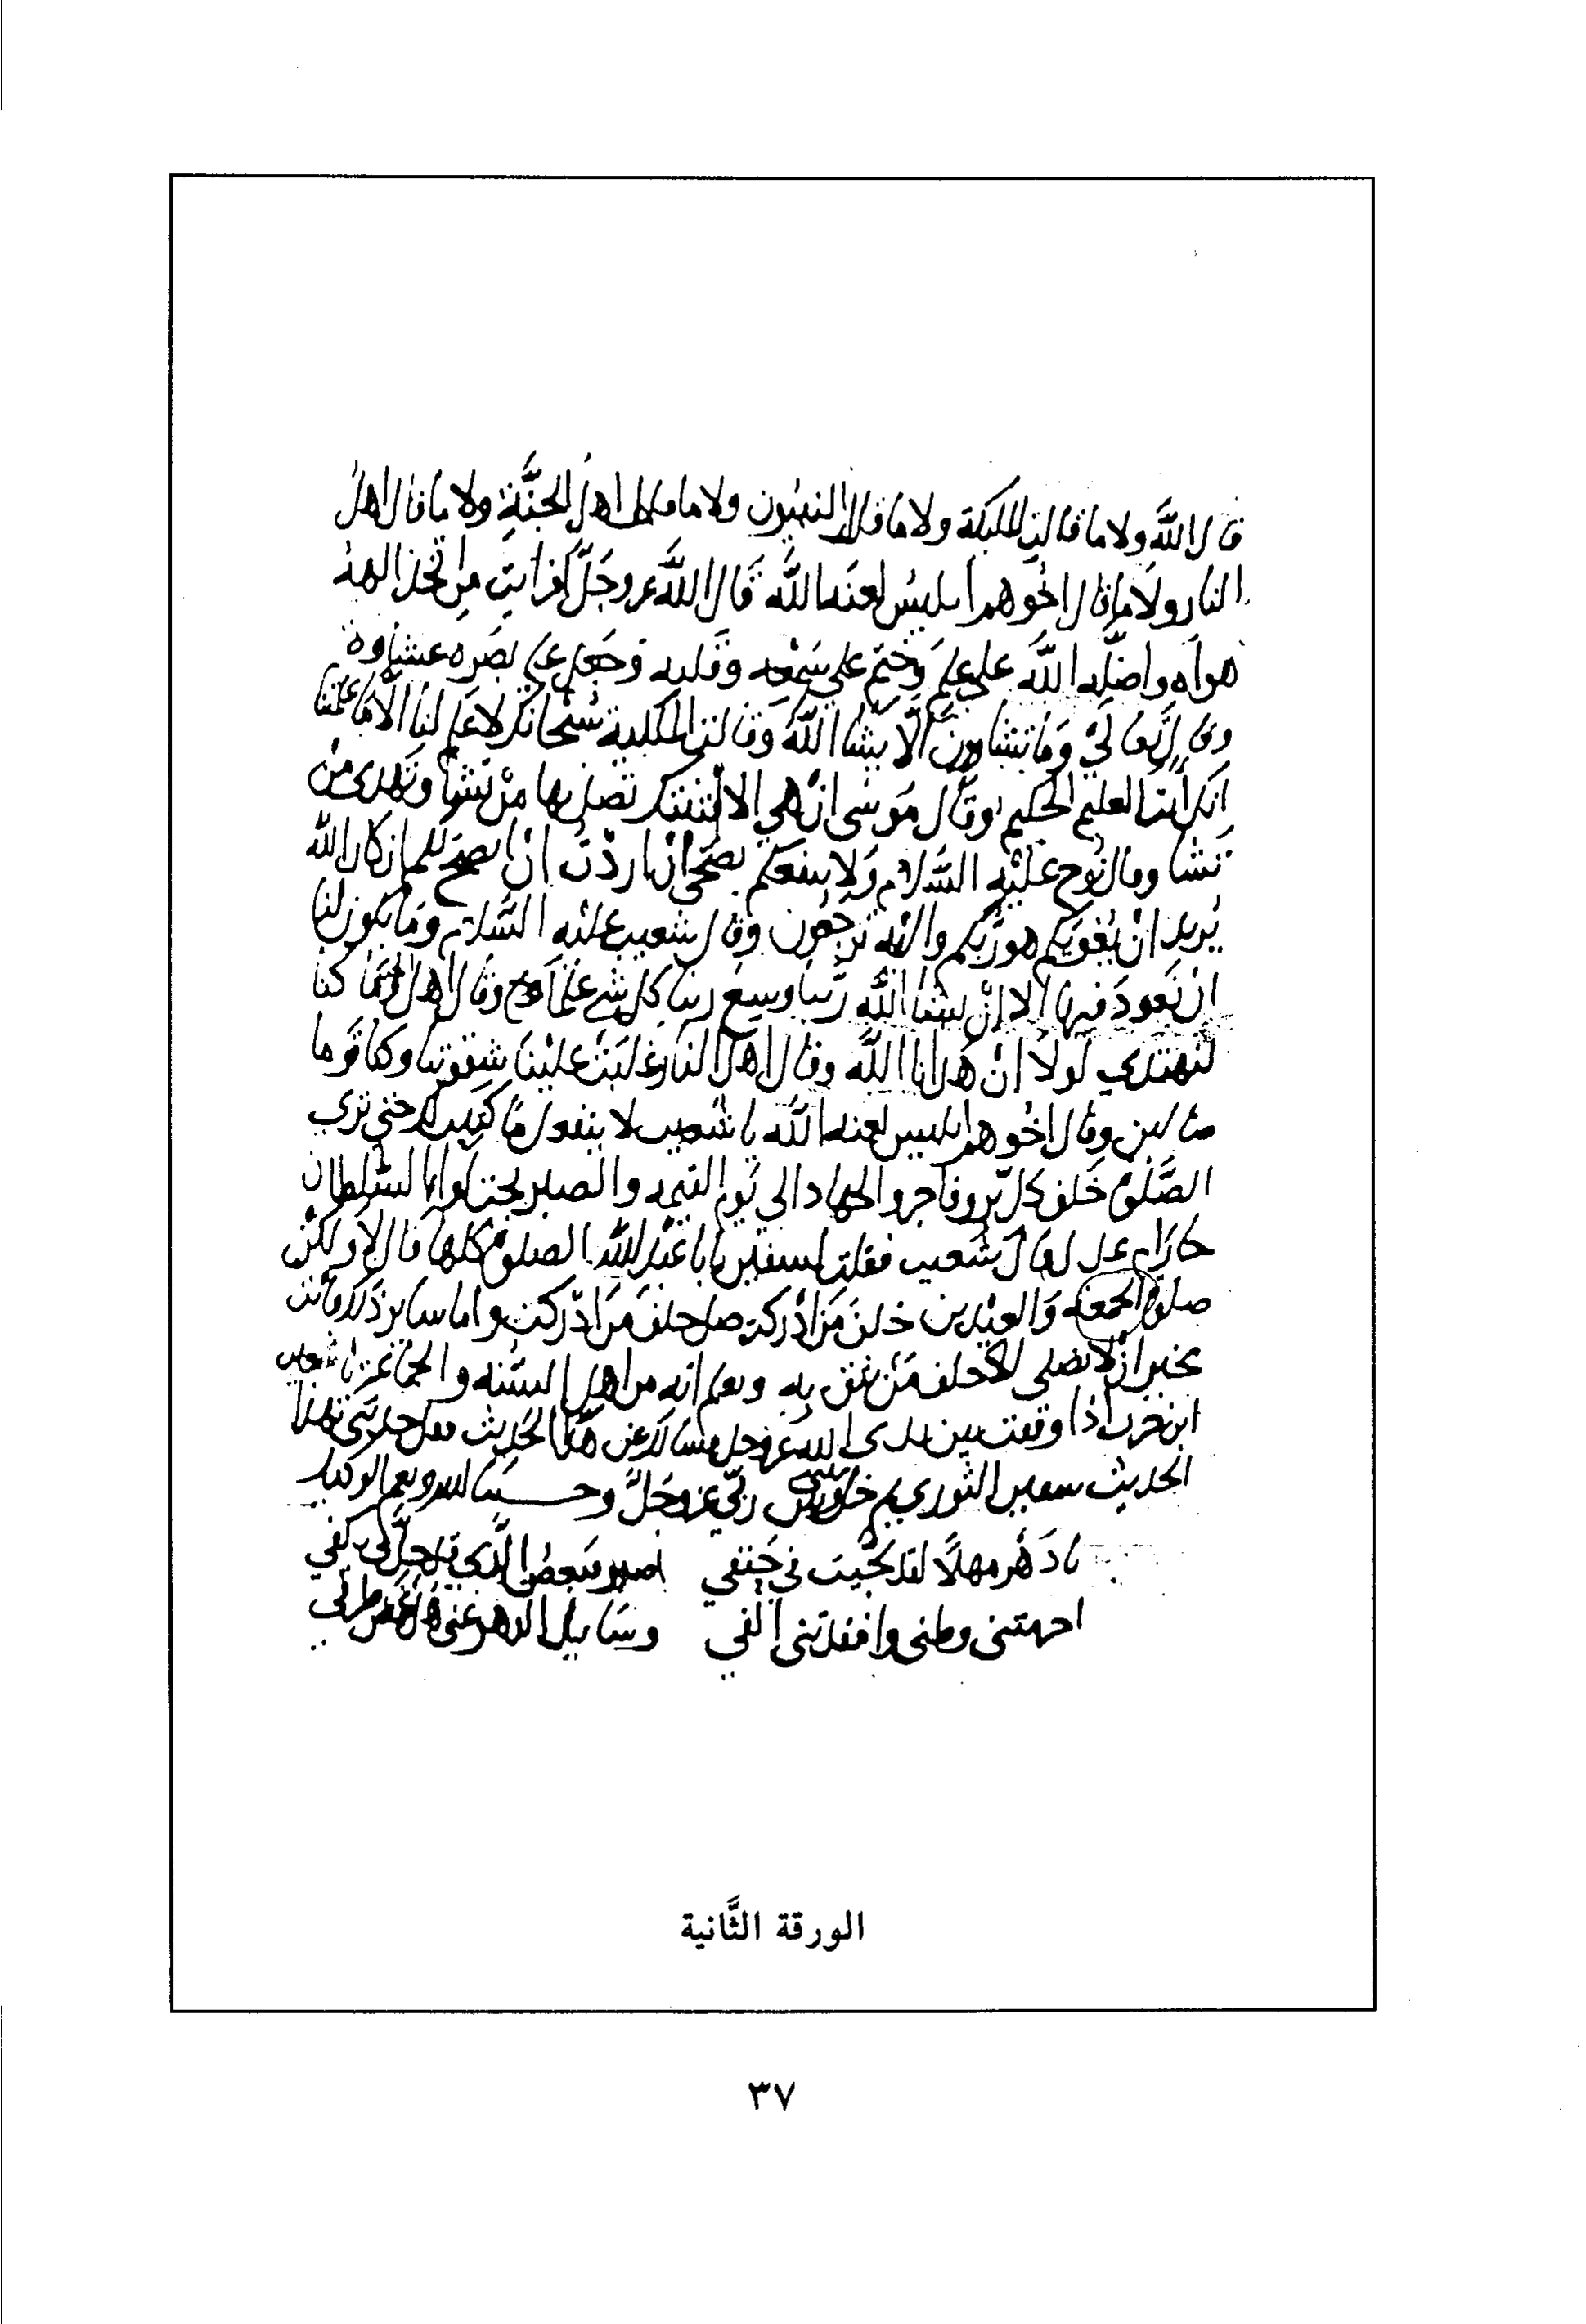 قال الله ولا ما قالت الملىكة ولا ما قال النبيون ولا ما قال اهل الجنَّة ولا ما قال اهل
النار ولا ما قال اخوهم ابليس لعنه الله قال الله عز وجل افرايت من اتخذ الهه
هواه واضله الله على علم وختم على سمعه وقلبه وجعل على بصره غشاوة
وقال تعالى وما تشاون الا يشا الله وقالت الملىكة سبحانك لا علم لنا الا ما علمتنا
انك انت العليم الحكيم وقال موسى ان هي الا فتنتك تضل بها من تشا وتهدى من
تشا وقال نوح عليه السلام ولا ينفعكم نصحي ان اردت ان انصح لكم ان كان الله
يريد ان يغويكم هو ربكم واليه ترجعون وقال شعيب عليه السلام وما يكون لنا
ان نعود فيها الا ان يشا الله ربنا وسع ربنا كل شي علما وقال اهل الجنة ما كنا
لنهتدي لولا ان هدانا الله وقال اهل النار غلبت علينا شقوتنا وكنا قوما
ضالين وقال اخوهم ابليس لعنه الله يا شعيب لا ينفعك ما كتبت حتى ترى
الصلوة خلف كل بر وفاجر والجهاد الى يوم القيمة والصبر تحت لوا السلطان
جار ام عدل قال شعيب فقلت لسفين يابا عبد الله الصلوة كلها قال لا ولكن
صلوة الجمعه والعيدين خلف من ادركت صل خلف من ادركت واما ساير ذلك فانت
مخير ان لا تصلي الا خلف من تثق به وتعلم انه من اهل السنه والجماعة يا شعيب
ابن حرب اذا وقفت بين يدى الله عز وجل فسالك عن هذا الحديث فقل حدثنى بهذا
الحديث سفين الثوري ثم خل بينى وبين ربي عز وجل وحسبنا الله ونعم الوكيل
يا دهر مهلا لقد
وسايل الدهر عنى
الورقة الثَّانية
٣٧